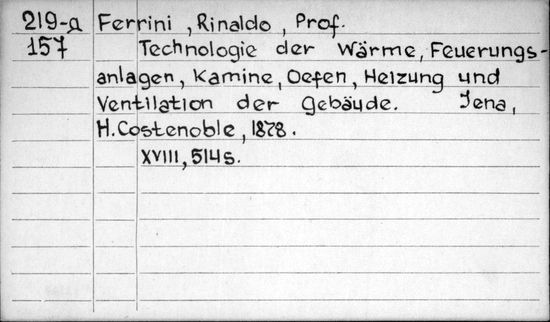 219-a Ferrini, Rinaldo, Prof.
157 Technologie der Wärme, Feuerungs-
anlagen, Kamine, Oefen, Heizung und
Ventilation der Gebäude. Jena,
H. Costenoble, 1878.
XVIII, 514s.